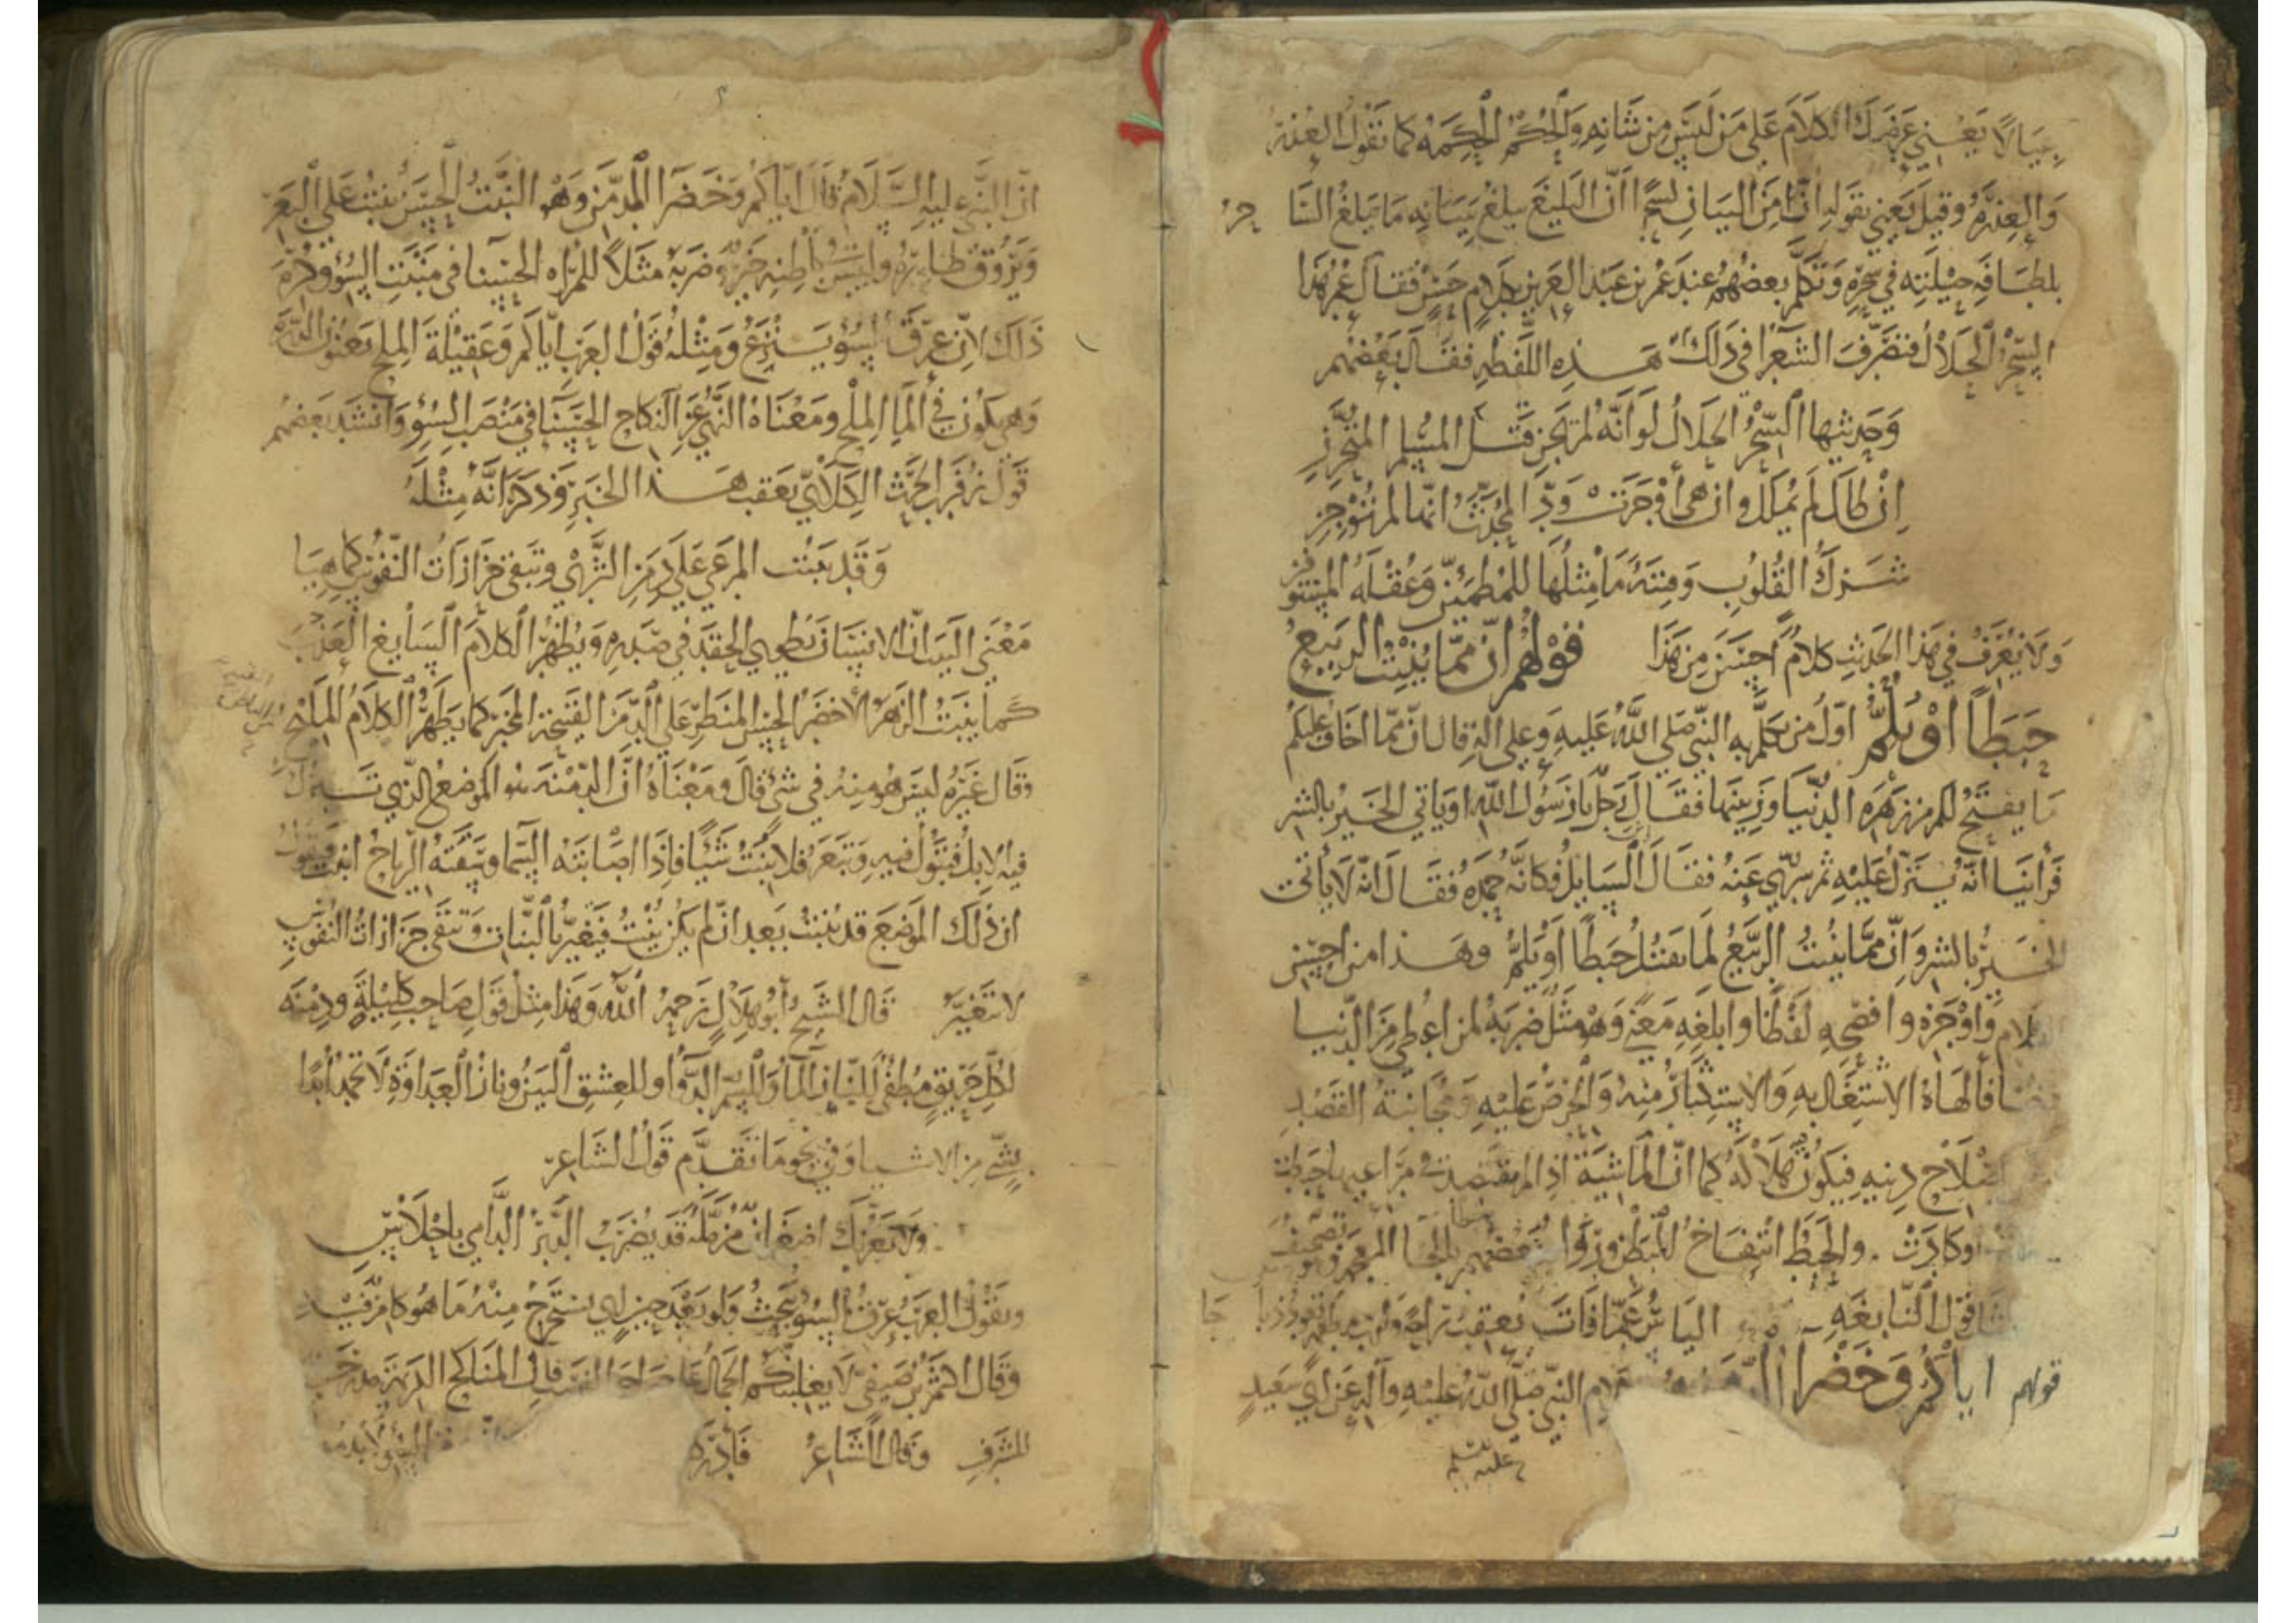 عيالا يعني عرضك الكلام على من ليس من شانه والحكم الحكمة كما تقول العذر
والعذرة وقيل يعني بقوله ان من البيان لسحرا ان البليغ يبلغ ببيانه ما يبلغ السا حر
بلطافة حيلته في سحره وتكلم بعضهم عند عمر بن عبد العزيز بكلام حسن فقال عمر هذا
السحر الحلال فتصرف الشعرا في ذلك هذه اللفظه فقال بعضهم
وحديثها السحر الحلال لو انه لم يجن قتل المسلم المتحرز
ان طال لم يملل وان هي أوجزت ود المحدث انها لم توجز
شرك القلوب وفتنة ما مثلها للمطمئن وعقلة المستوفز
ولا نعرف في هذا الحديث كلاما احسن من هذا قولهم ان مما ينبت الربيع
حبطا او يلم اول من تكلم به النبي صلى الله عليه وعلى اله قال ان مما اخاف عليكم
ما يفتح لكم من زهرة الدنيا وزينتها فقال رجل يا رسول الله اوياتي الخير بالشر
فراينا انه ينزل عليه ثم سري عنه فقال السايل فكانه حمده فقال انه لا يأتي
الخير بالشر وان مما ينبت الربيع لما يقتل حبطا او يلم وهذا من احسن
الكلام واوجزه وافصحه لفظا وابلغه معنى وهو مثل ضربه لمن اعطي من الدنيا
حظا فألهاه الاشتغال به والاستكثار منه والحرص عليه ومجانبة القصد
اصلاح دينه فيكون هلاكه كما ان الماشية اذا لم تقتصد في مراعيها حبطت
او كادت والحبط انتفاخ البطن ورواه بعضهم بالخا المعجمة وهو تصحيف
قول النابغه الياس عما فات يعقب راحة ولرب مطمعة تعود ذبا حا
قولهم اياكم وخضرا الدمن كلام النبي صلى الله عليه وآله عن ابي سعيد
عليه السلم
ان النبي عليه السلام قال اياكم وخضرا الدمن وهو النبت الحسن ينبت على البعر
ويروق ظاهره وليس في باطنه خير ضربه مثلا للمراه الحسنا في منبت السؤ وكره
ذلك لان عرق السؤ ينزع ومثله قول العرب اياكم وعقيلة الملح يعنون الدرة
وهي تكون في الما الملح ومعناه النهي عن النكاح الحسنا في منصب السؤ وانشد بعضهم
قول زفر بن الحرث الكلابي يعقب هذا الخبر وذكر انه مثله
وقد ينبت المرعى على دمن الثرى وتبقى حزازات النفوس كما هيا
معنى البيت ان الانسان يطوي الحقد في صدره ويظهر الكلام السايغ العذب
كما ينبت الزهر الاخضر الحسن المنظر على الدمن القبيحة المخبر كما يظهر الكلام المليح
وقال غيره ليس هو منه في شئ قال ومعناه ان الدمنه هو الموضع الذي تبرك
فيه الابل فتبول فيه وتبعر فلا ينبت شيئا فاذا اصابته السما وسفته الرياح انبت فيقول
ان ذلك الموضع قد ينبت بعد ان لم يكن ينبت فيتغير بالنبات وتبقى حزازات النفوس
لا تتغير قال الشيخ أبو هلال رحمه الله وهذا مثل قول صاحب كليلة ودمنه
لكل حريق مطفئ للنار الما وللسم الدوا وللعشق البين ونار العداوة لا تخمد أبدا
بشي من الاشيا وفي نحو ما تقدم قول الشاعر
ولا يغرنك اضغان مزملة قد يضرب الدبر الدامي باحلاس
وتقول العرب عرق السوء ينجث ولو بعد حين اي يستخرج منه ما هو كامن فيه
وقال اكثم بن صيفي لا يغلبنكم الجمال على صراحة النسب فان المناكح الكريمة مدرجة
للشرف وقال الشاعر فأدركه